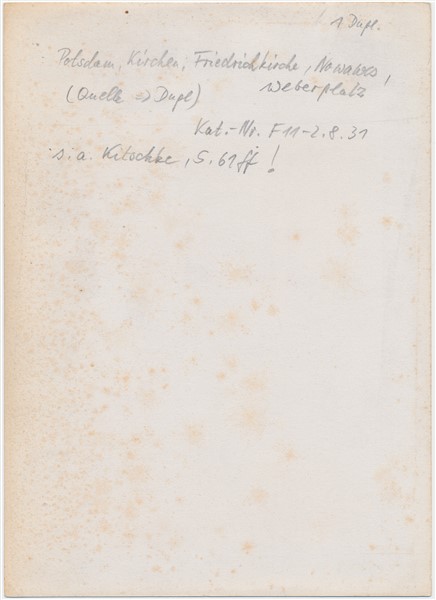 1 Dupl.
Potsdam, Kirchen, Friedrichkirche, Nowawes,
Weberplatz
(Quelle => Dupl)
Kat.-Nr. F11-2.8.31
s. a. Kitschke, S. 61ff !